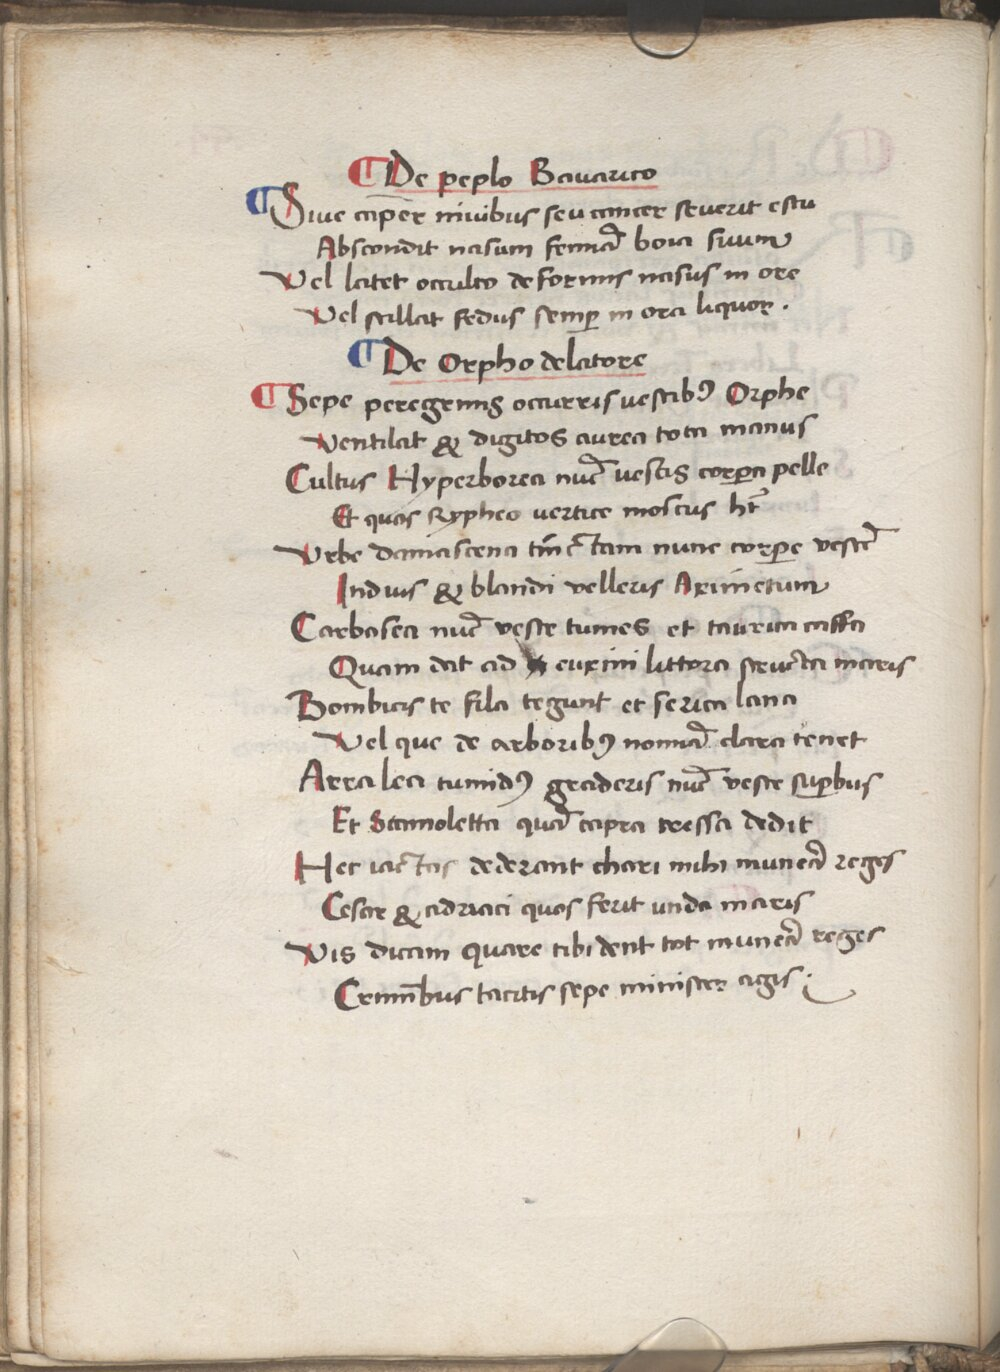 ¶ De peplo Bavarico
¶ Sive caper nivibus seu cancer severit estu
Abscondit nasum femīa boia suum
Vel latet occulto deformis nasus in ore
Vel stillat fedus semp̲ in ora liquor .
¶ De Orpho delatore
¶ Sepe peregrinis occurris vestibꝰ Orphe
Ventilat & digitos aurea tota manus
Cultus Hyperborea nūc vestis corp̲a pelle
Et quas Rypheo vertice moscus ht̄
Urbe damascena tīctam nunc corpe vestē
Induis & blandi velleris Arimetum
Carbasea nūc veste tumes et taurica caffa
Quam dat ad euxini littora structa maris
Bombicis te fila tegunt et serica lana
Vel que de arboribꝰ nomīa clara tenet
Arralea tumidꝰ graderis nūc veste sup̲bus
Et Scamoletta quā capra tressa dedit
Hec iactas dederant chari mihi munera reges
Cesar & adriaci quas ferit unda maris
Vis dicam quare tibi dent tot munera reges
Crimībus tacitis sepe minister agis .